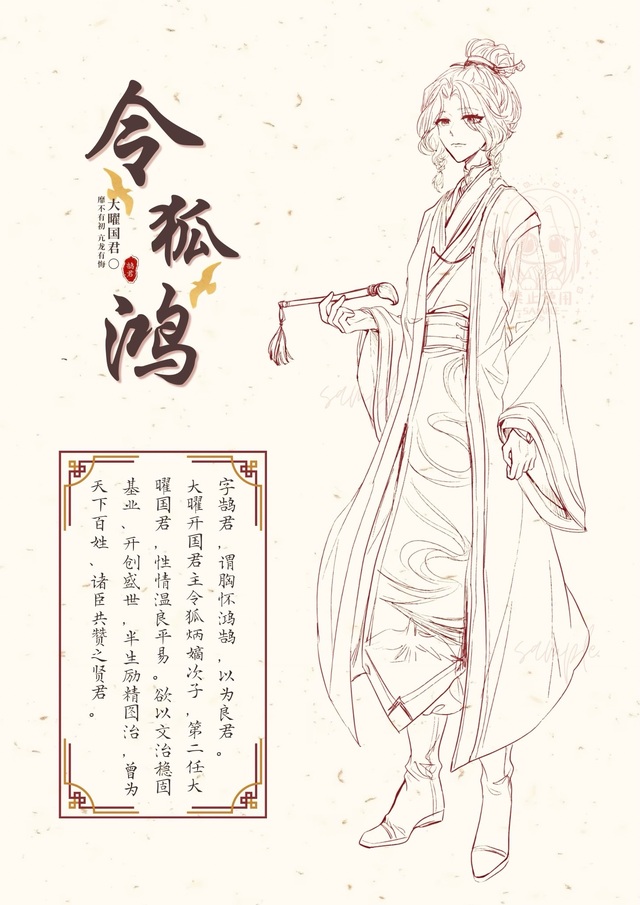 令狐鸿
大曜国君
靡不有初 亢龙有悔
鹄君
字鹄君，谓胸怀鸿鹄，以为良君。
大曜开国君主令狐炳嫡次子，第二任大
曜国君，性情温良平易。欲以文治稳固
基业、开创盛世，半生励精图治，曾为
天下百姓、诸臣共赞之贤君。
禁止盗用
SAMPLE
sample
sample